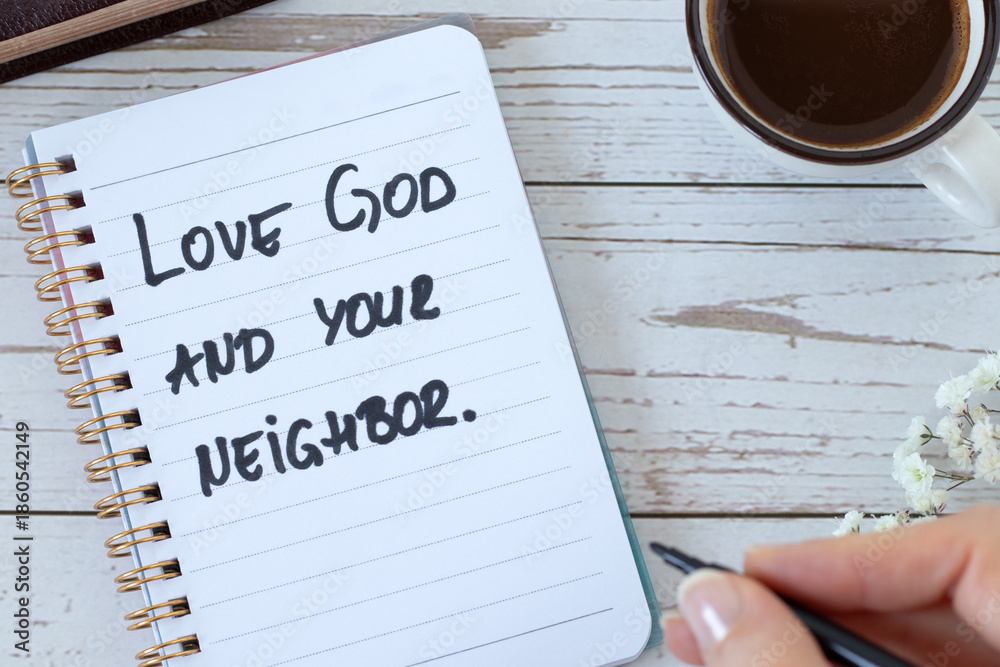 Love God
and your
neighbor.
Adobe Stock | #1860542149